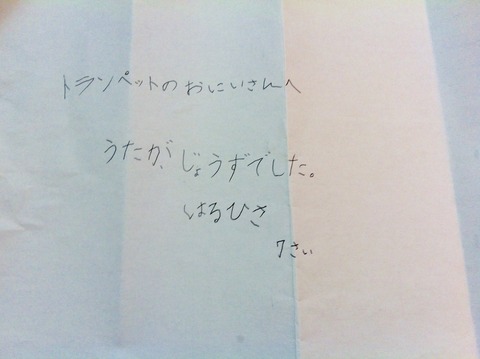 トランペットのおにいさんへ
うたが、じょうずでした。
はるひさ
7さい